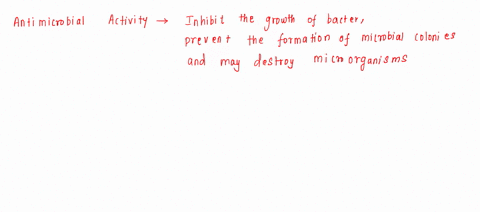 Antimicrobial Activity → Inhibit the growth of bacter,
prevent the formation of microbial colonies
and may destroy microorganisms